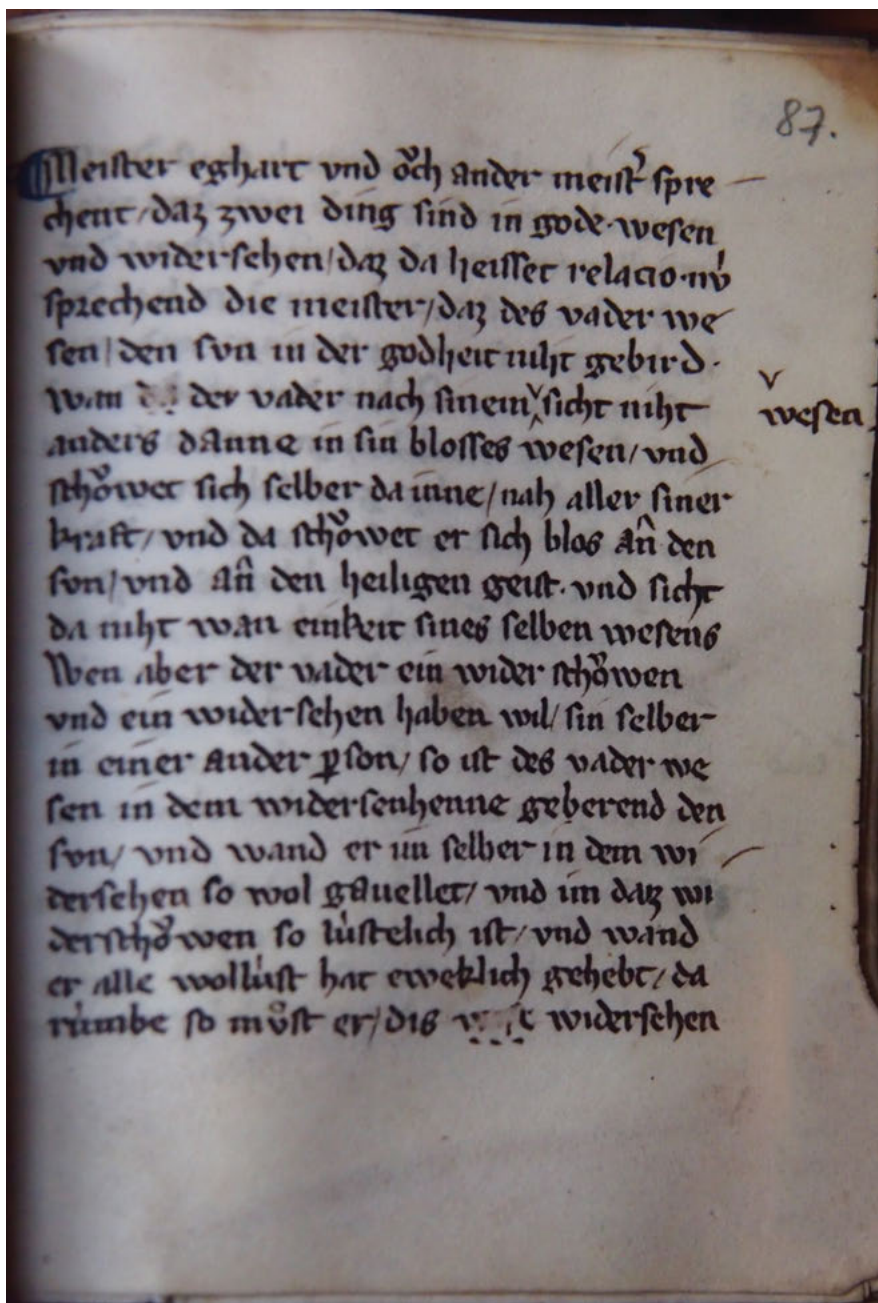 87.
Meister eghart vnd oͮch ander meist᷑ spre
chent/daz zwei ding sind in gode·wesen
vnd wider sehen/daz da heisset relacio·nv̍
sprechend die meister/daz des vader we
sen/den svn in der godheit niht gebird·
wan der vader nach sinem sicht niht
wesen
anders danne in sin blosses wesen/vnd
schoͮwet sich selber da inne/nah aller siner
kraft/vnd da schoͮwet er sich blos an̂ den
svn/vnd an̂ den heiligen geist·vnd sicht
da niht wan einkeit sines selben wesens
Wen aber der vader ein wider schoͮwen
vnd ein wider sehen haben wil/sin selber
in einer ander ꝑson/so ist des vader we
sen in dem widersenhenne geberend den
svn/vnd wand er im selber in dem wi
dersehen so wol geuellet/vnd im daz wi
derschoͮwen so lu̍stelich ist/vnd wand
er alle wollu̍st hat eweklich gehebt/da
ru̍mbe so mvͦst er/dis widersehen